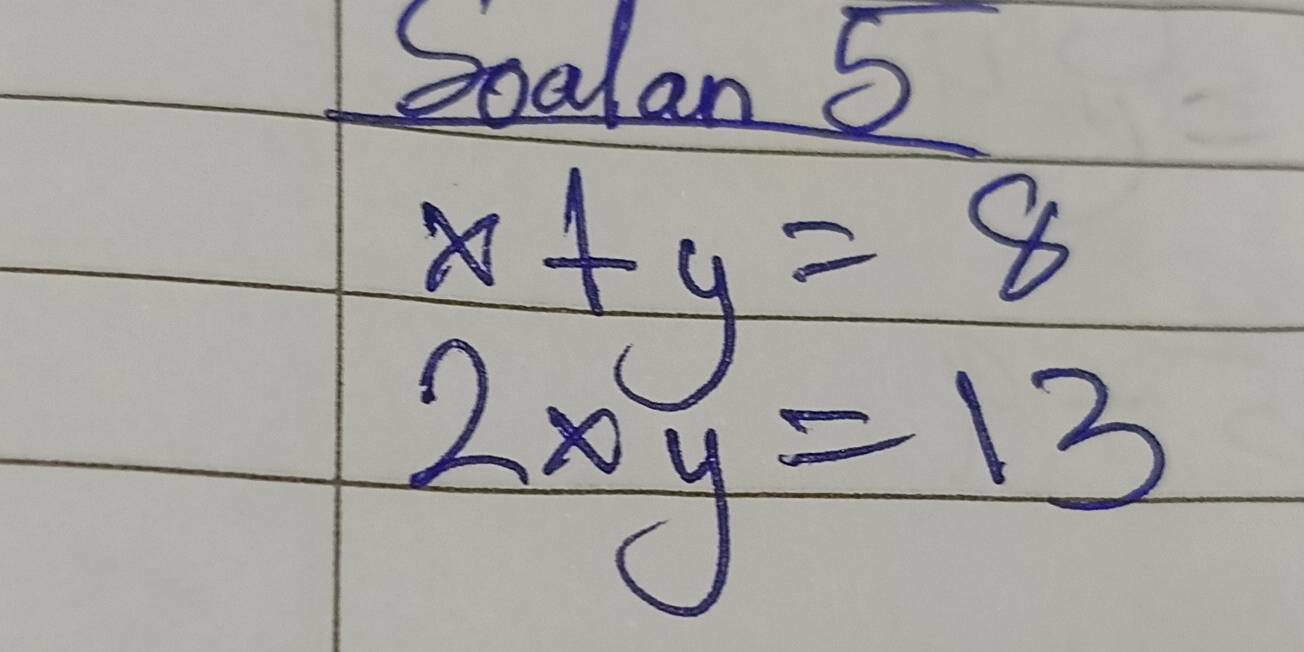 Soalan 5
x + y = 8
2xy = 13